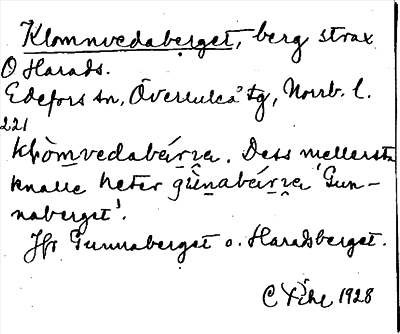 Klomnvedaberget, berg strax
O Harads.
Edefors sn, Överluleå tg, Norrb. l.
221
Dess mellersta
knalle heter 'Gun-
naberget'.
Jfr Gunnaberget o. Haradsberget.
1928